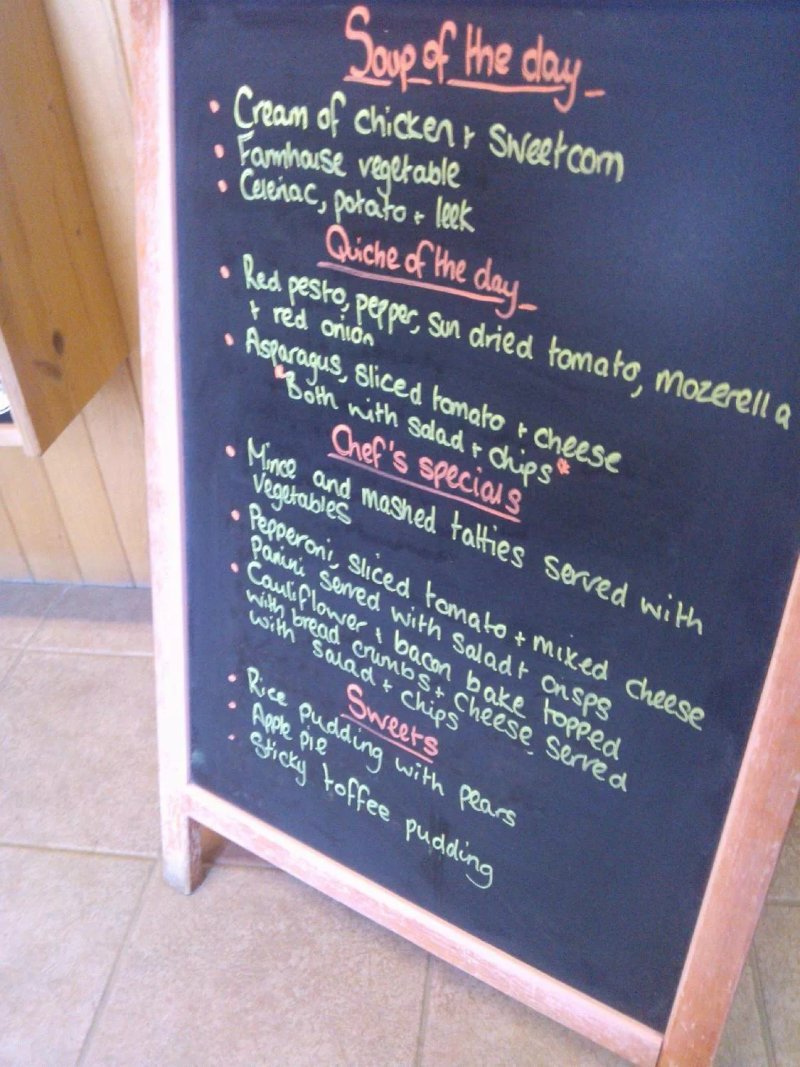 Soup of the day
• Cream of chicken + Sweetcorn
• Farmhouse vegetable
• Celeriac, potato + leek
Quiche of the day
• Red pesto, pepper, sun dried tomato, mozerella
+ red onion
• Asparagus, sliced tomato + cheese
*Both with salad + chips*
Chef's specials
• Mince and mashed tatties served with
vegetables
• Pepperoni, sliced tomato + mixed cheese
Panini served with salad + crisps
• Cauliflower + bacon bake topped
with bread crumbs + cheese served
with salad + chips
Sweets
• Rice pudding with pears
• Apple pie
• Sticky toffee pudding